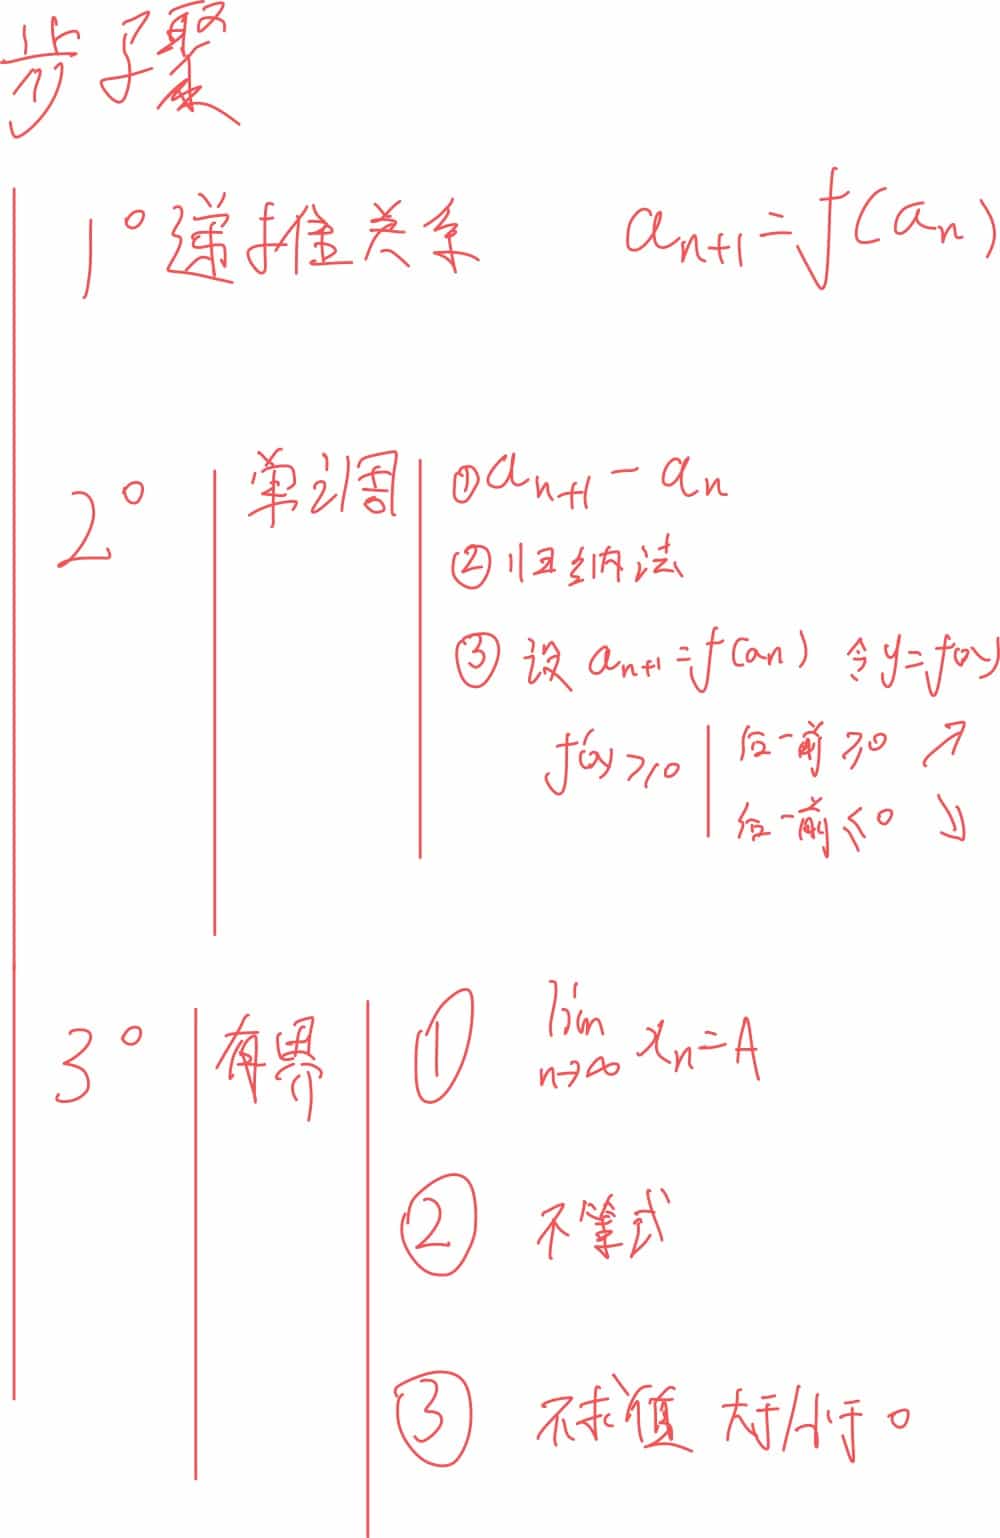 步骤
1° 递推关系 aₙ₊₁=f(aₙ)
2° 单调 ①aₙ₊₁-aₙ
②归纳法
③ 设 aₙ₊₁=f(aₙ) 令 y=f(x)
f'(x)≥0 后-前≥0 ↗
后-前≤0 ↘
3° 有界 ① lim n→∞ xₙ=A
② 不等式
③ 不求值 大于/小于 0